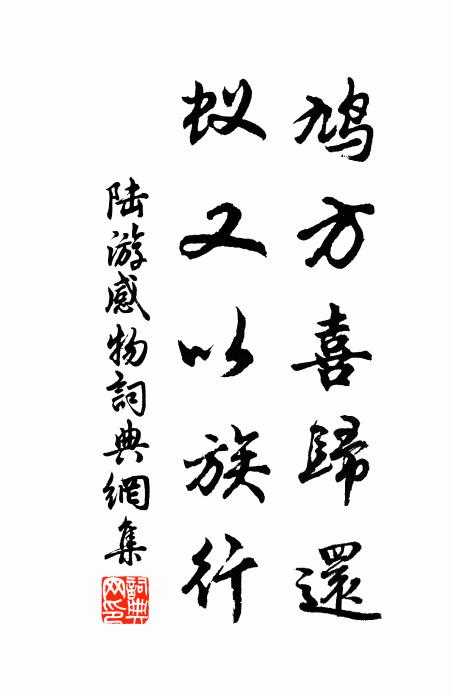 鸠方喜歸還
蚁又以族行
陆游感物詞典網集
詞典网印